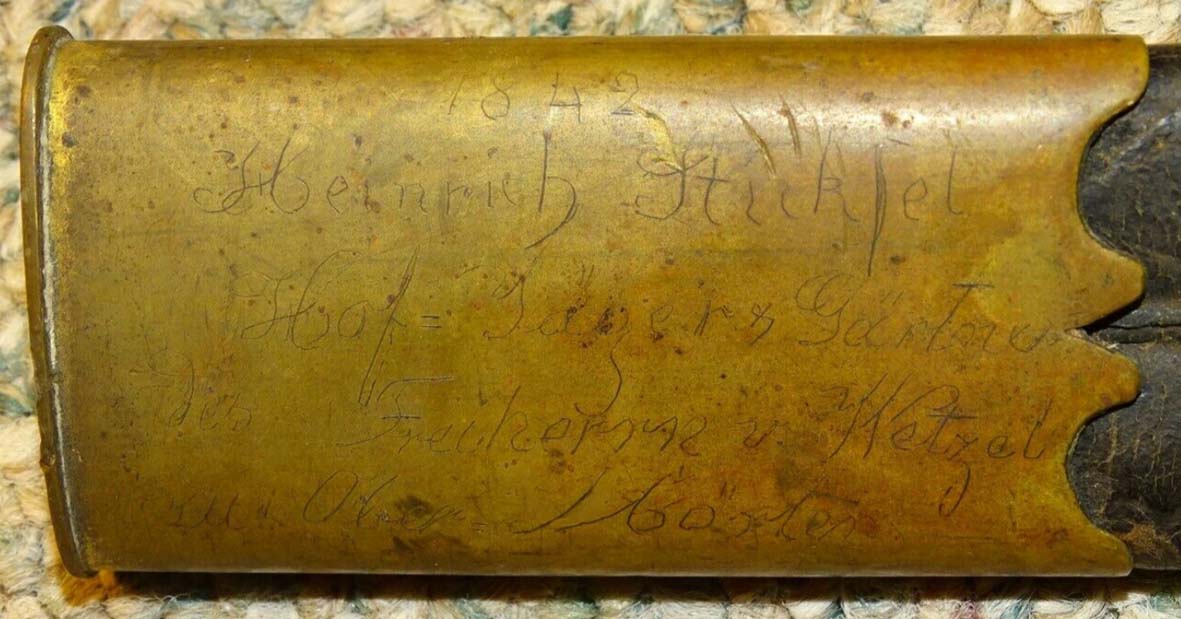 1842
Heinrich Stickfel
Hof= Jäger & Gärtner
des Freiherrn v. Wetzel
zu Ober=